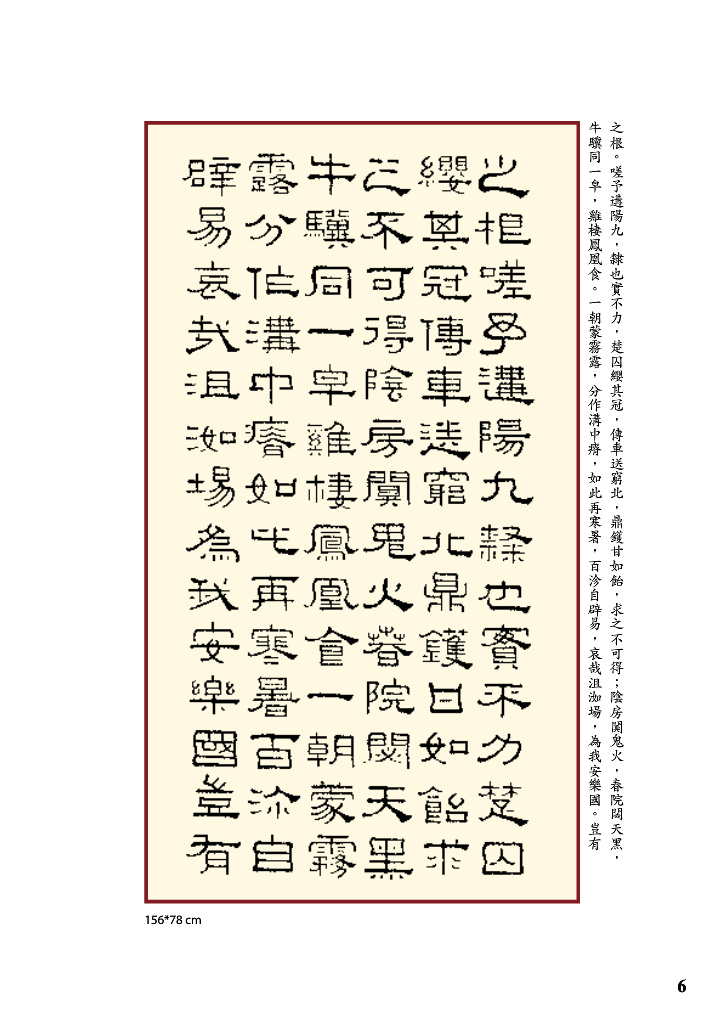 之根。嗟予遘陽九,隸也實不力,楚囚纓其冠,傳車送窮北,鼎鑊甘如飴,求之不可得;陰房闃鬼火,春院閟天黑,
牛驥同一皁,雞棲鳳凰食。一朝蒙霧露,分作溝中瘠,如此再寒暑,百沴自辟易,哀哉沮洳場,為我安樂國。豈有
之根嗟予遘陽九隸也實不力楚囚
纓其冠傳車送窮北鼎鑊甘如飴求
之不可得陰房闃鬼火春院閟天黑
牛驥同一皁雞棲鳳凰食一朝蒙霧
露分作溝中瘠如此再寒暑百沴自
辟易哀哉沮洳場為我安樂國豈有
156*78 cm
6